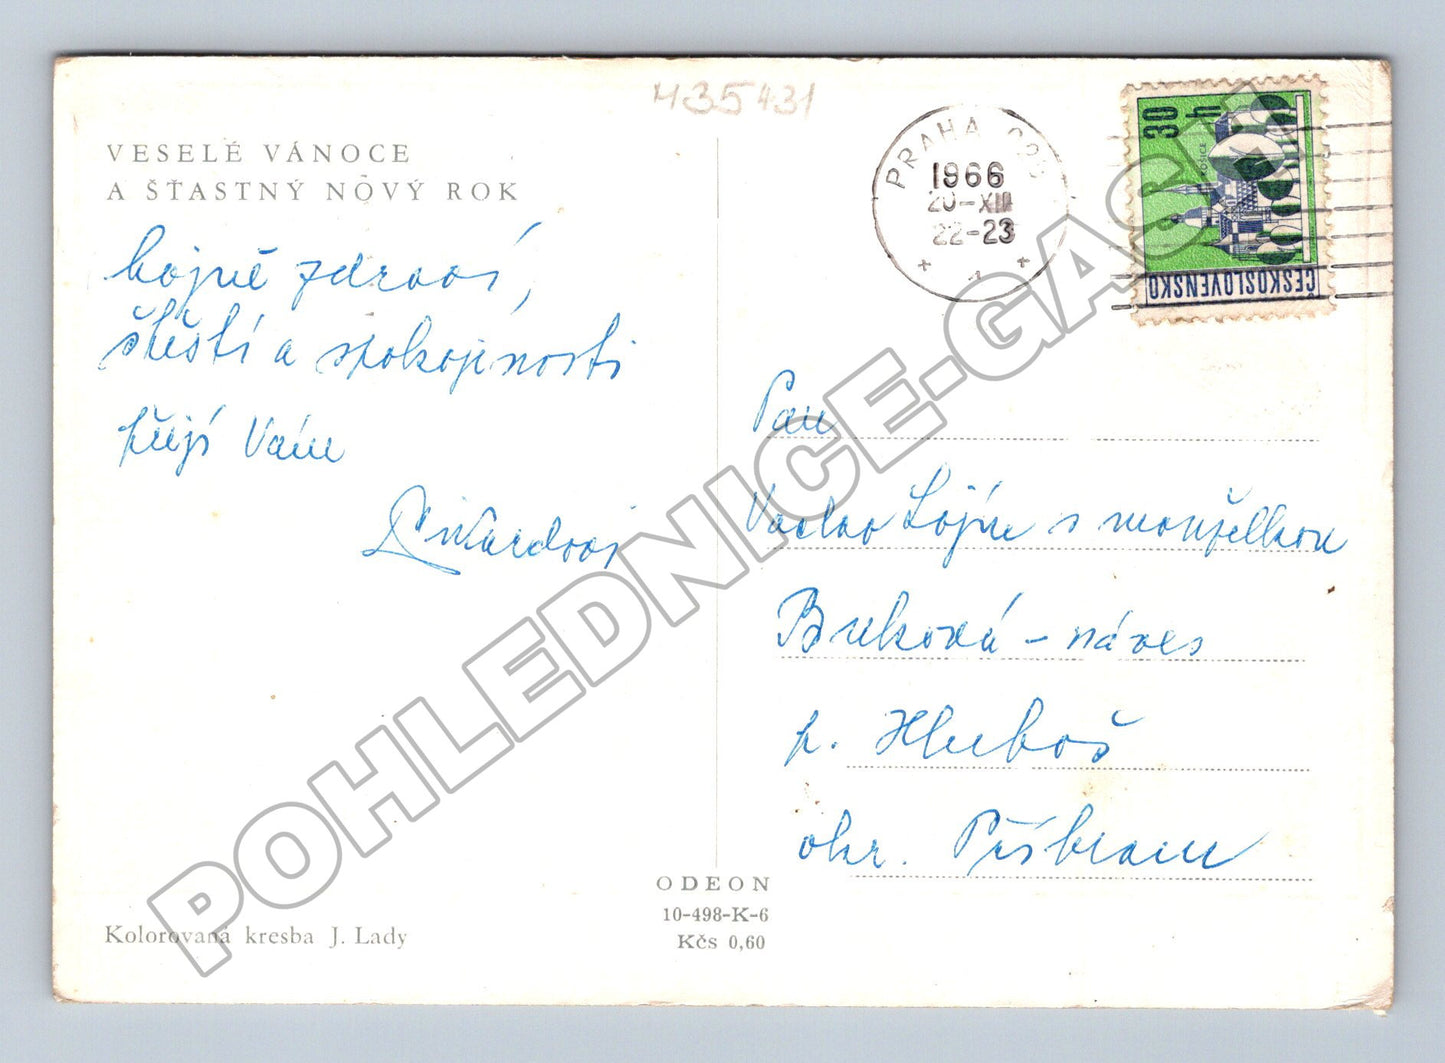 435431
VESELÉ VÁNOCE
A ŠŤASTNÝ NOVÝ ROK
hojně zdraví,
štěstí a spokojenosti
přejí Vám
PRAHA
1966
20-XII
22-23
30 h
KOŠICE
ČESKOSLOVENSKO
Pan
Václav Lojín s manželkou
Buková - náves
p. Hluboš
okr. Příbram
ODEON
10-498-K-6
Kčs 0,60
Kolorovaná kresba J. Lady
POHLEDNICE-GASH